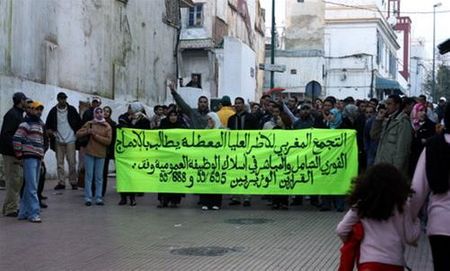 التجمع المغربي للأطر العليا المعطلة يطالب بالإدماج
الفوري الشامل والمباشر في أسلاك الوظيفة العمومية وفق
القرارين الوزاريين 695/99 و 888/99